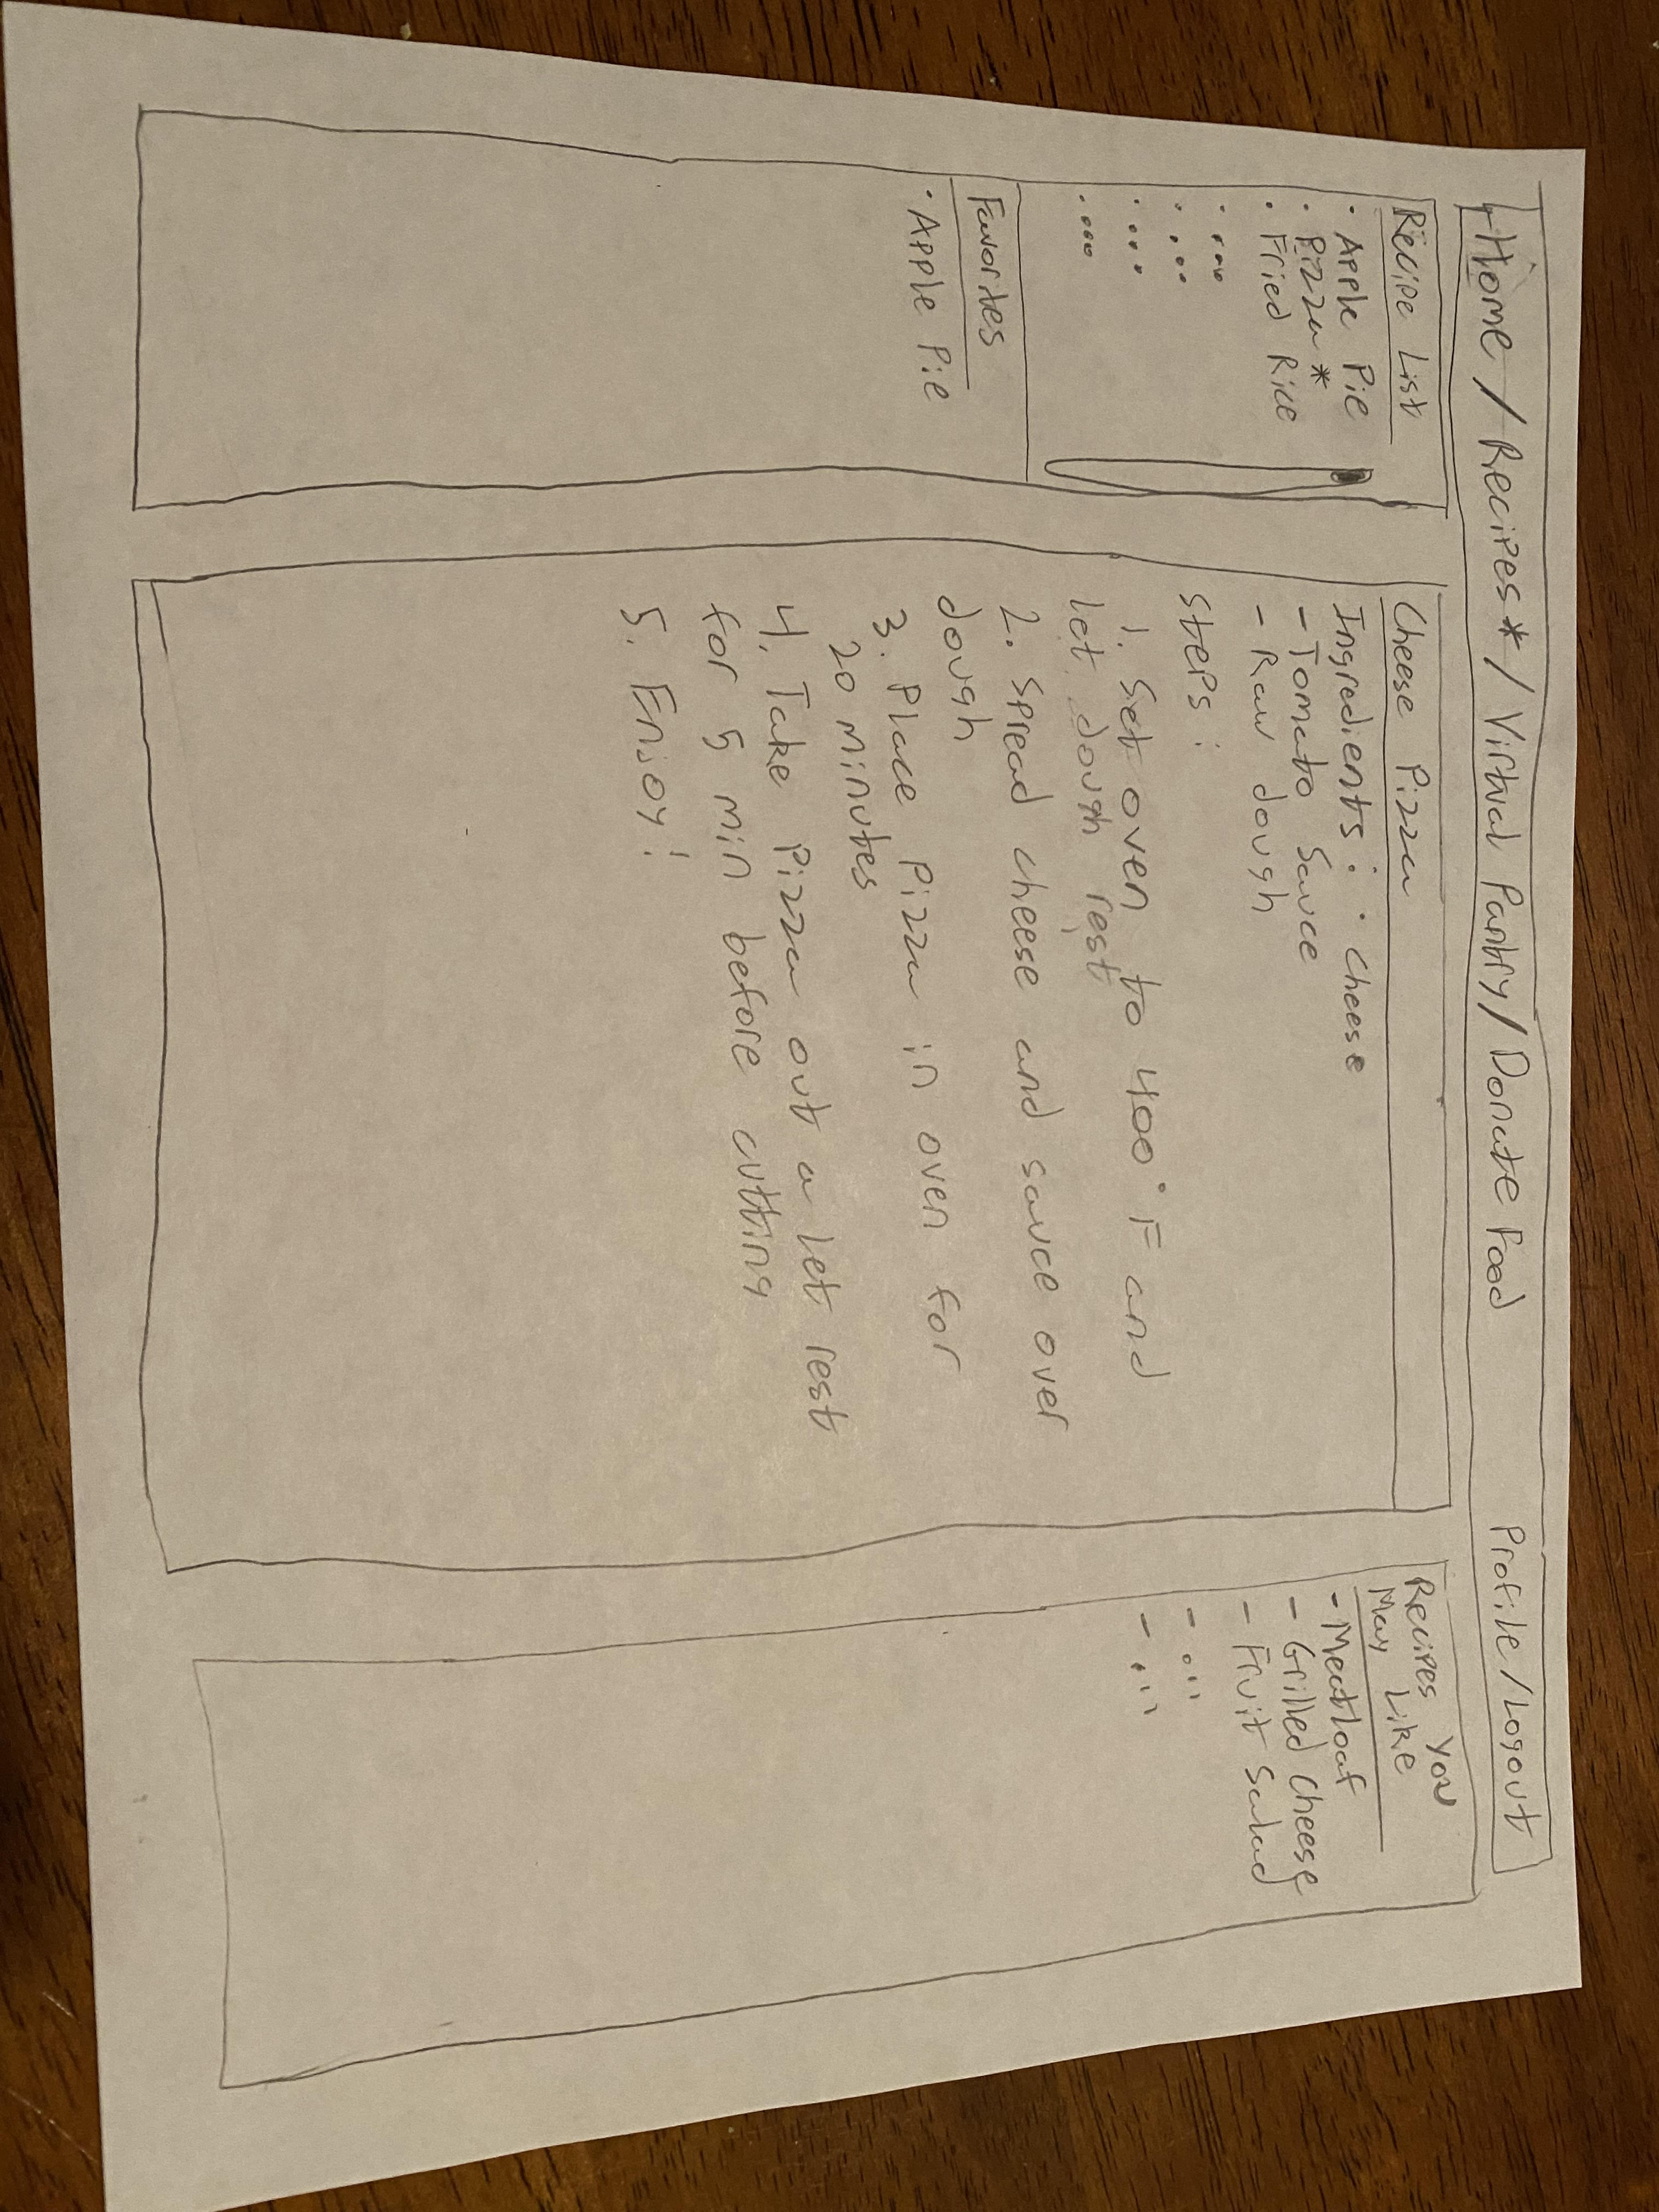 Home / Recipes* / Virtual Pantry / Donate Food
Profile / Logout
Recipe List
· Apple Pie
· Pizza *
· Fried Rice
· ...
· ...
· ...
· ...
Favorites
· Apple Pie
Cheese Pizza
Ingredients: · Cheese
- Tomato Sauce
- Raw dough
Steps:
1. Set oven to 400°F and
let dough rest
2. Spread cheese and sauce over
dough
3. Place Pizza in oven for
20 minutes
4. Take Pizza out a let rest
for 5 min before cutting
5. Enjoy!
Recipes You
May Like
- Meatloaf
- Grilled Cheese
- Fruit Salad
- ...
- ...